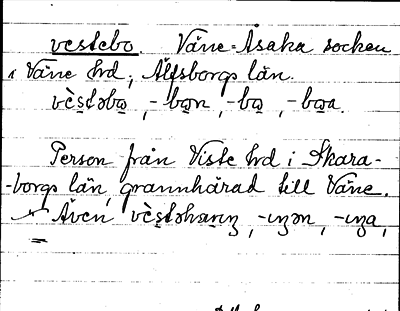 vestebo. Väne-Åsaka socken
i Väne hrd, Älfsborgs län.
vὲstəbo, -bon, -bo, -boa.
Person från Viste hrd i Skara-
-borgs län, grannhärad till Väne.
Även vὲstəharıŋ, -ıŋən, -ıŋa,